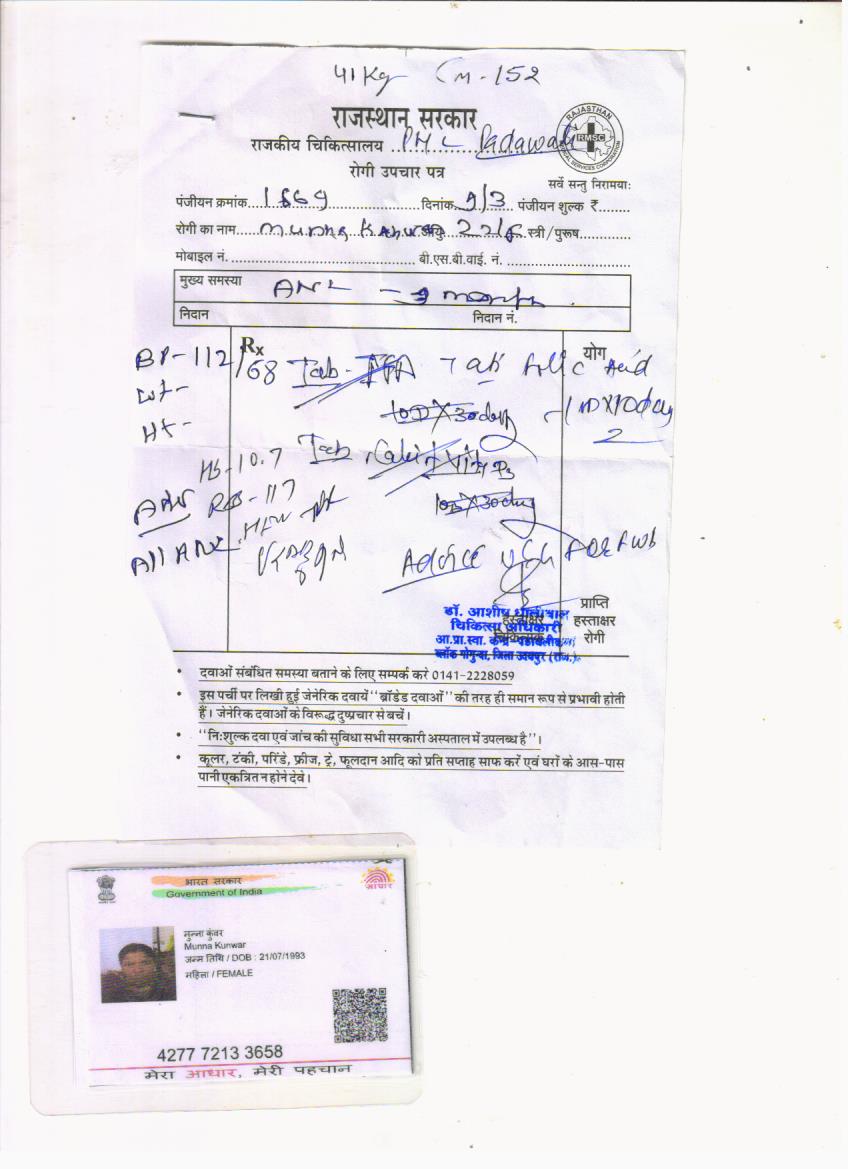 41 Kg Cm - 152
राजस्थान सरकार
RAJASTHAN
RMSC
MEDICAL SERVICES CORPORATION
राजकीय चिकित्सालय PHC Padawali
रोगी उपचार पत्र
सर्वे सन्तु निरामयाः
पंजीयन क्रमांक 1669 दिनांक 9/3 पंजीयन शुल्क ₹........
रोगी का नाम.... Munna Kanwar आयु 22/F स्त्री/पुरूष.............
मोबाइल नं. .......................................... बी.एस.बी.वाई. नं. ............................
मुख्य समस्या ANC - 9 month
निदान निदान नं.
Rx योग
BP - 112/68 Tab - IFA Tab Folic Acid
wt -
1OD X 30 day 1 OD X 10 day
Ht -
2
HB - 10.7 Tab
RBS - 117 1OD X 30 day
HIV
All ANC
Advice USG FOR FWB
डॉ. आशीष
हस्ताक्षर
चिकित्सा अधिकारी
चिकित्सक
आ.प्रा.स्वा. केन्द्र
ब्लॉक गोगुन्दा, जिला उदयपुर (राज.)
प्राप्ति
हस्ताक्षर
रोगी
• दवाओं संबंधित समस्या बताने के लिए सम्पर्क करे 0141-2228059
• इस पर्ची पर लिखी हुई जेनेरिक दवायें ''ब्रॉडेड दवाओं'' की तरह ही समान रूप से प्रभावी होती
हैं। जेनेरिक दवाओं के विरूद्ध दुष्प्रचार से बचें।
• ''निःशुल्क दवा एवं जांच की सुविधा सभी सरकारी अस्पताल में उपलब्ध है''।
• कूलर, टंकी, परिंडे, फ्रीज, ट्रे, फूलदान आदि को प्रति सप्ताह साफ करें एवं घरों के आस-पास
पानी एकत्रित न होने देवे।
भारत सरकार
Government of India
आधार
मुन्ना कुंवर
Munna Kunwar
जन्म तिथि / DOB : 21/07/1993
महिला / FEMALE
4277 7213 3658
मेरा आधार, मेरी पहचान